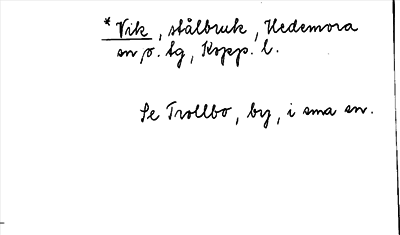 * Vik, stålbruk, Hedemora
sn o. tg, Kopp. l.
Se Trollbo, by, i sma sn.